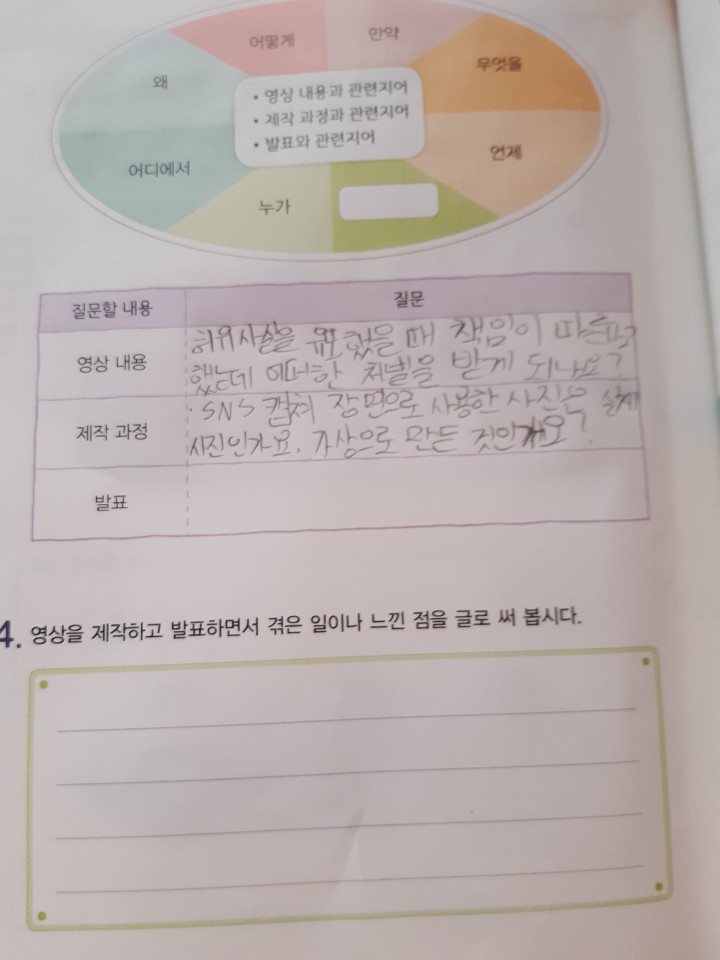 어떻게
만약
왜
무엇을
• 영상 내용과 관련지어
• 제작 과정과 관련지어
• 발표와 관련지어
어디에서
언제
누가
질문할 내용
질문
영상 내용
허위사실을 유포했을 때 책임이 따른다고
했는데 어떠한 처벌을 받게 되나요?
제작 과정
· SNS 캡쳐 장면으로 사용한 사진은 실제
사진인가요. 가상으로 만든 것인가요?
발표
4. 영상을 제작하고 발표하면서 겪은 일이나 느낀 점을 글로 써 봅시다.